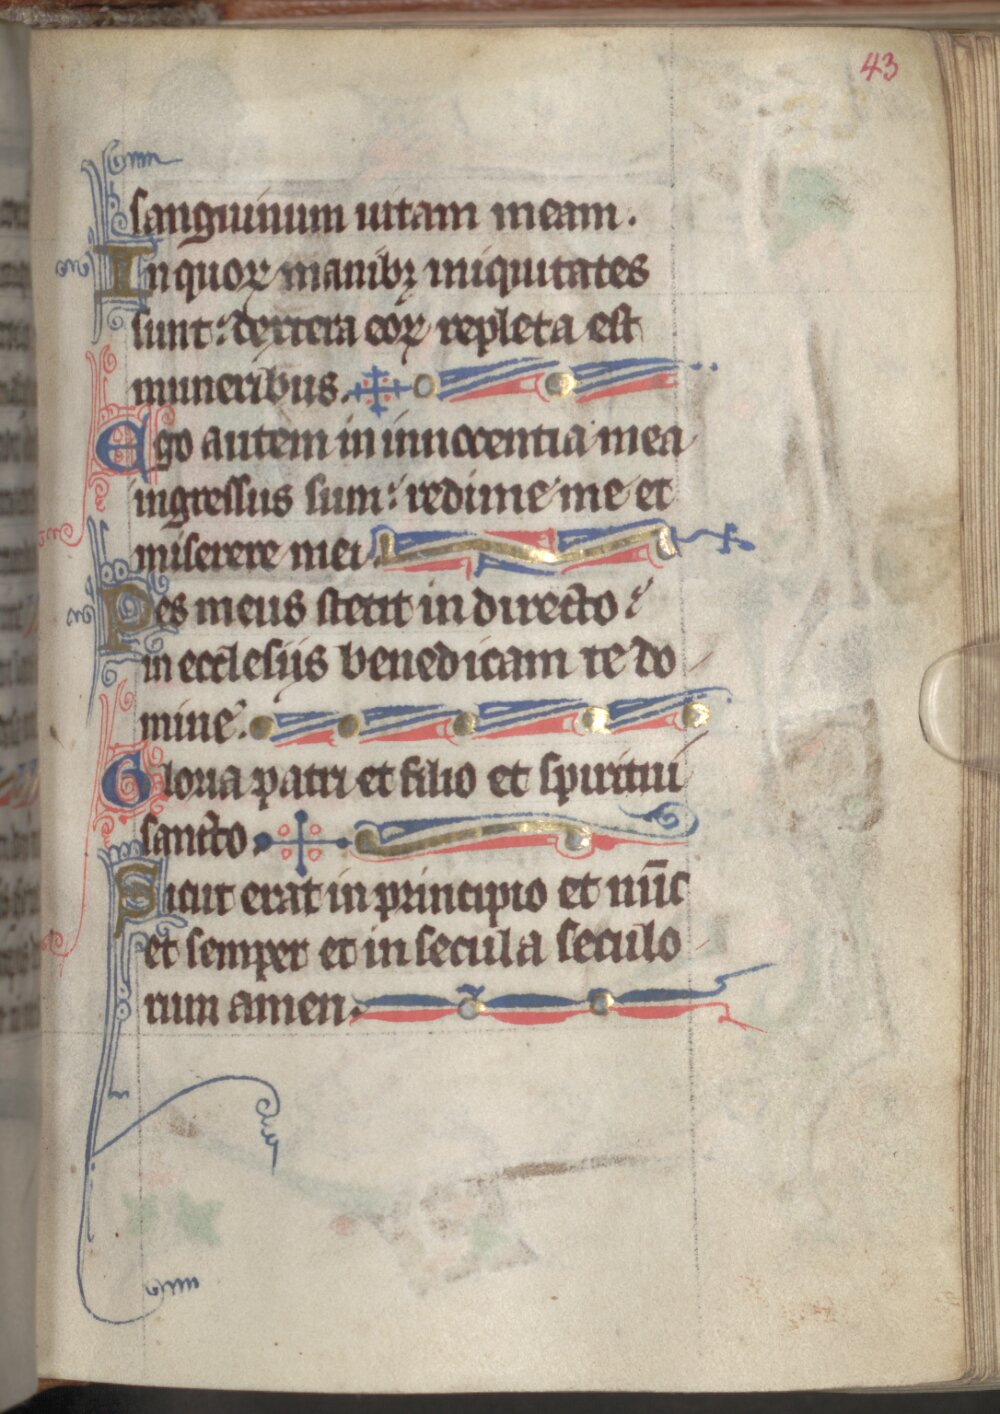 43
sanguinum uitam meam.
In quoꝝ manibꝫ iniquitates
sunt: dextera eoꝝ repleta est
muneribus.
Ego autem in innocentia mea
ingressus sum: redime me et
miserere mei.
Pes meus stetit in directo:
in ecclesiis benedicam te do
mine.
Gloria patri et filio et spiritui
sancto.
Sicut erat in principio et nūc
et semper et in secula seculo
rum amen.